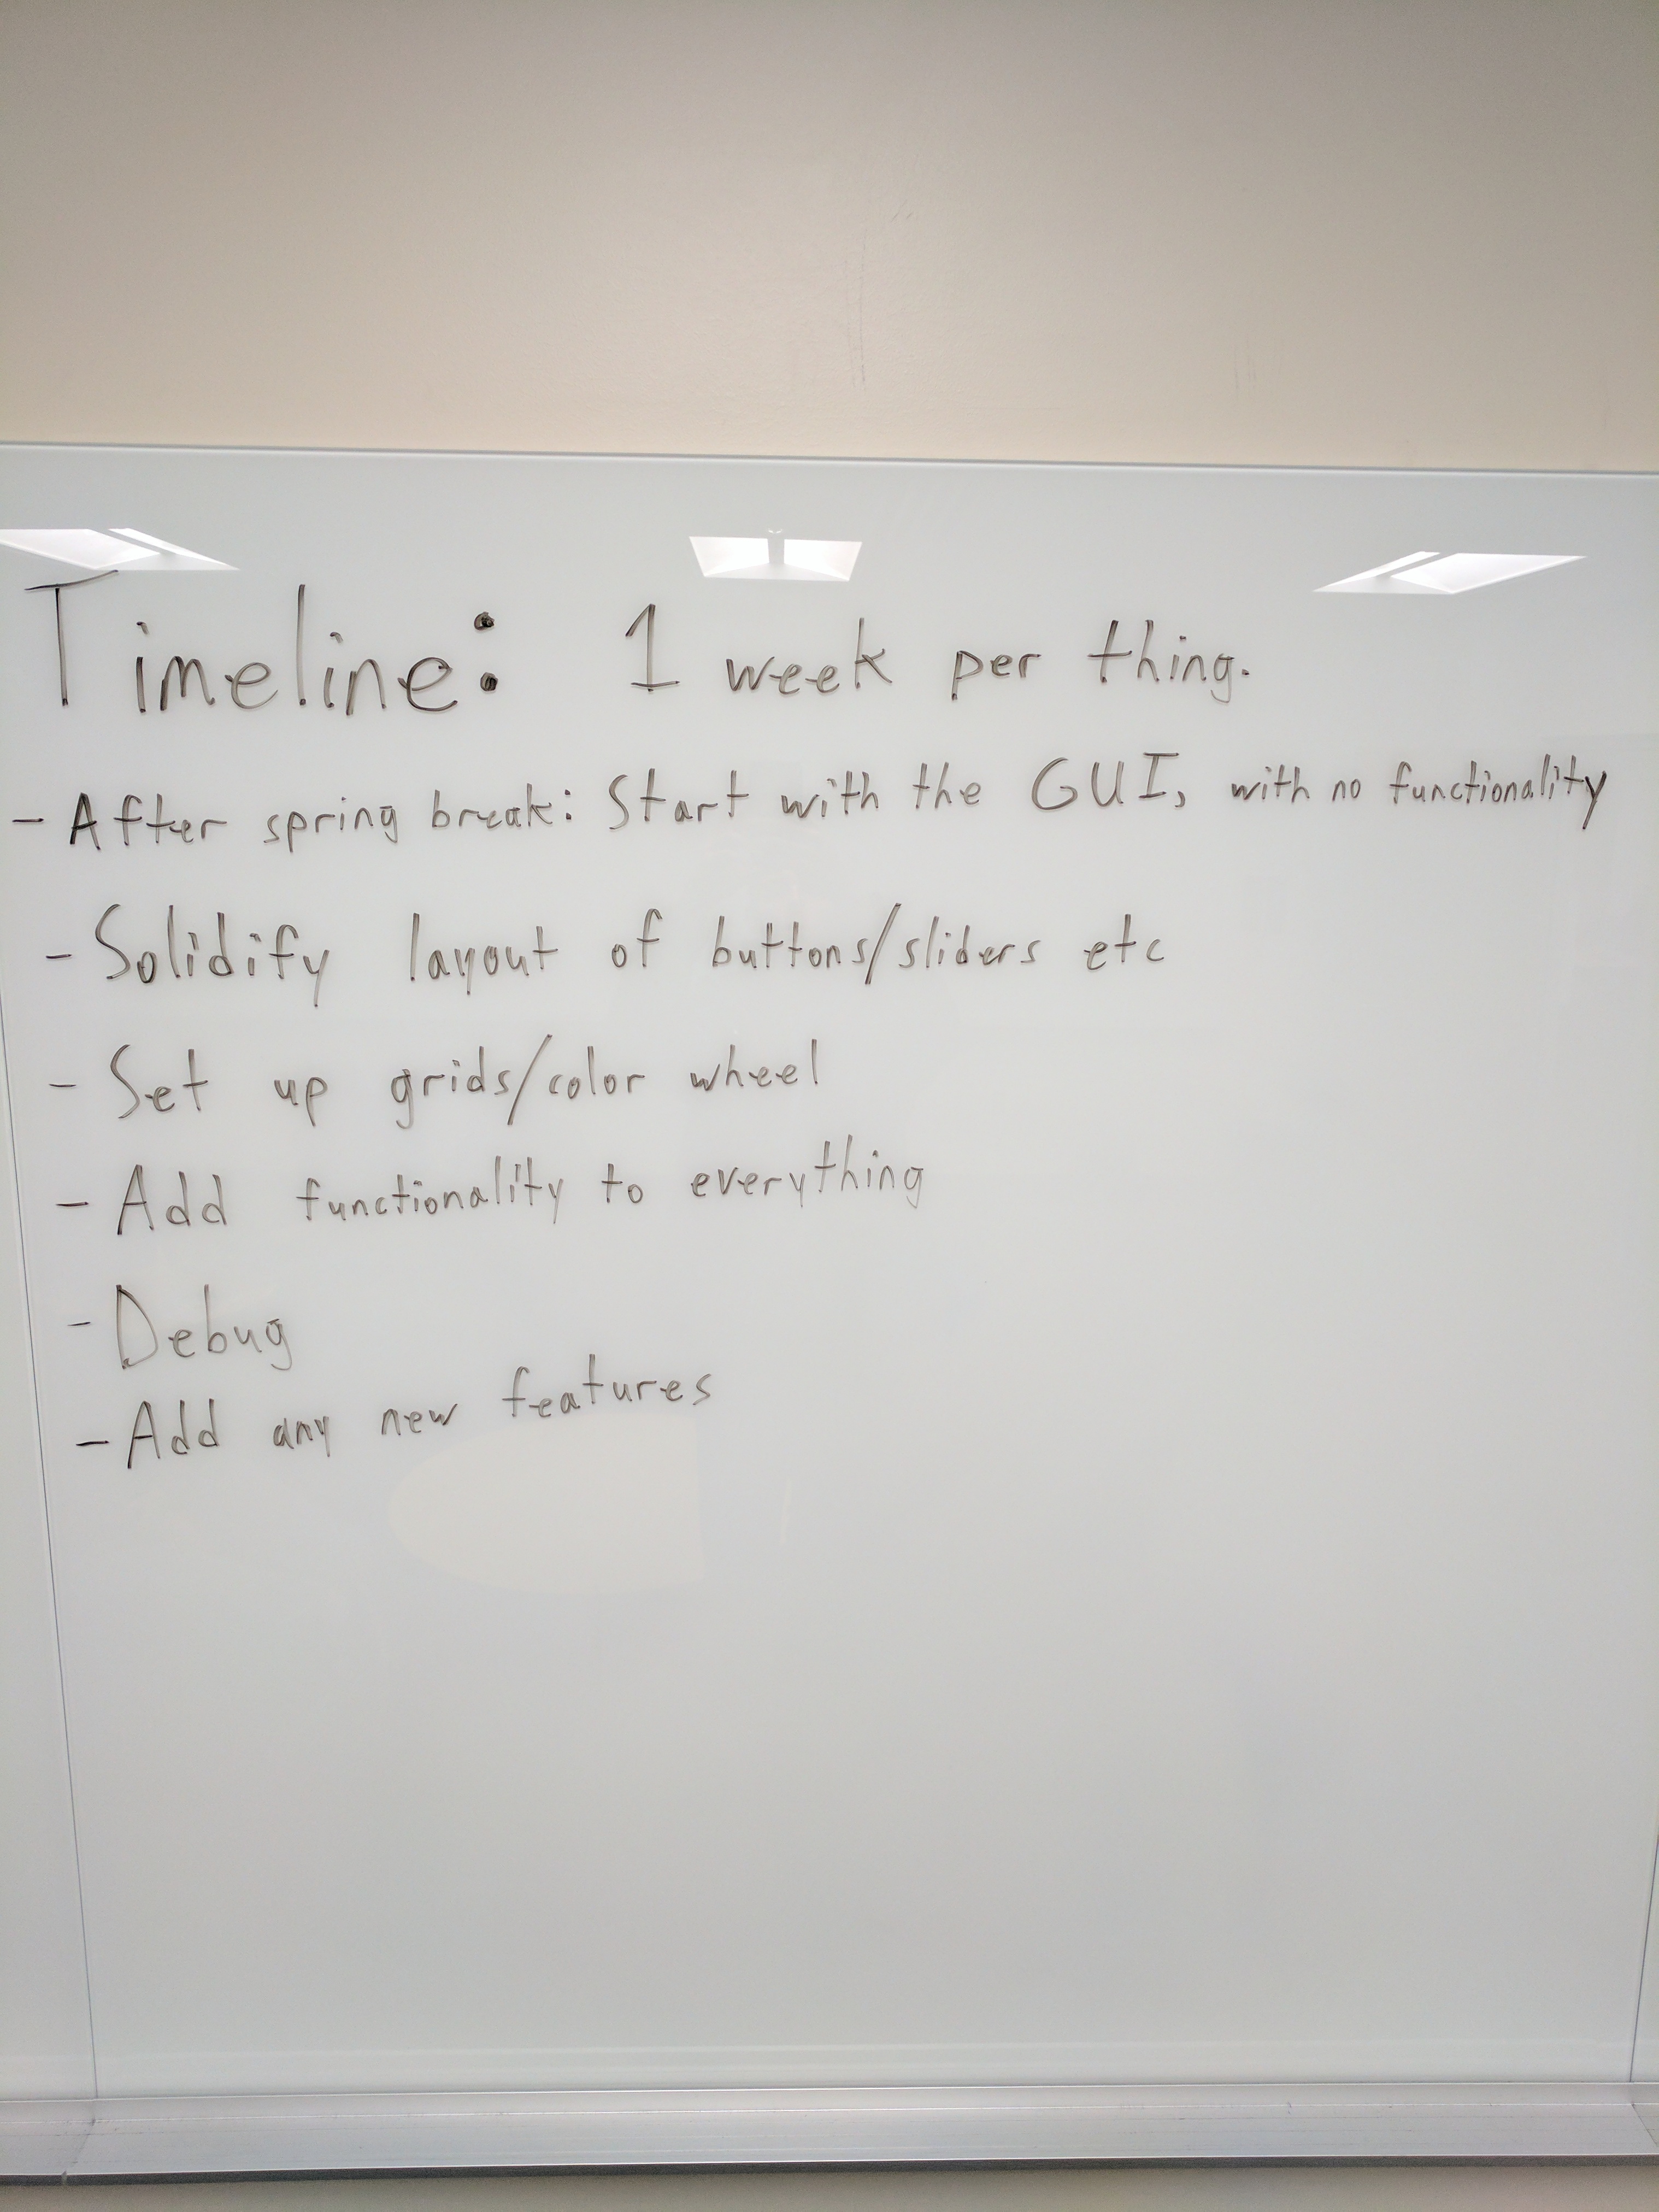 Timeline: 1 week per thing.
- After spring break: Start with the GUI, with no functionality
- Solidify layout of buttons/sliders etc
- Set up grids/color wheel
- Add functionality to everything
- Debug
- Add any new features